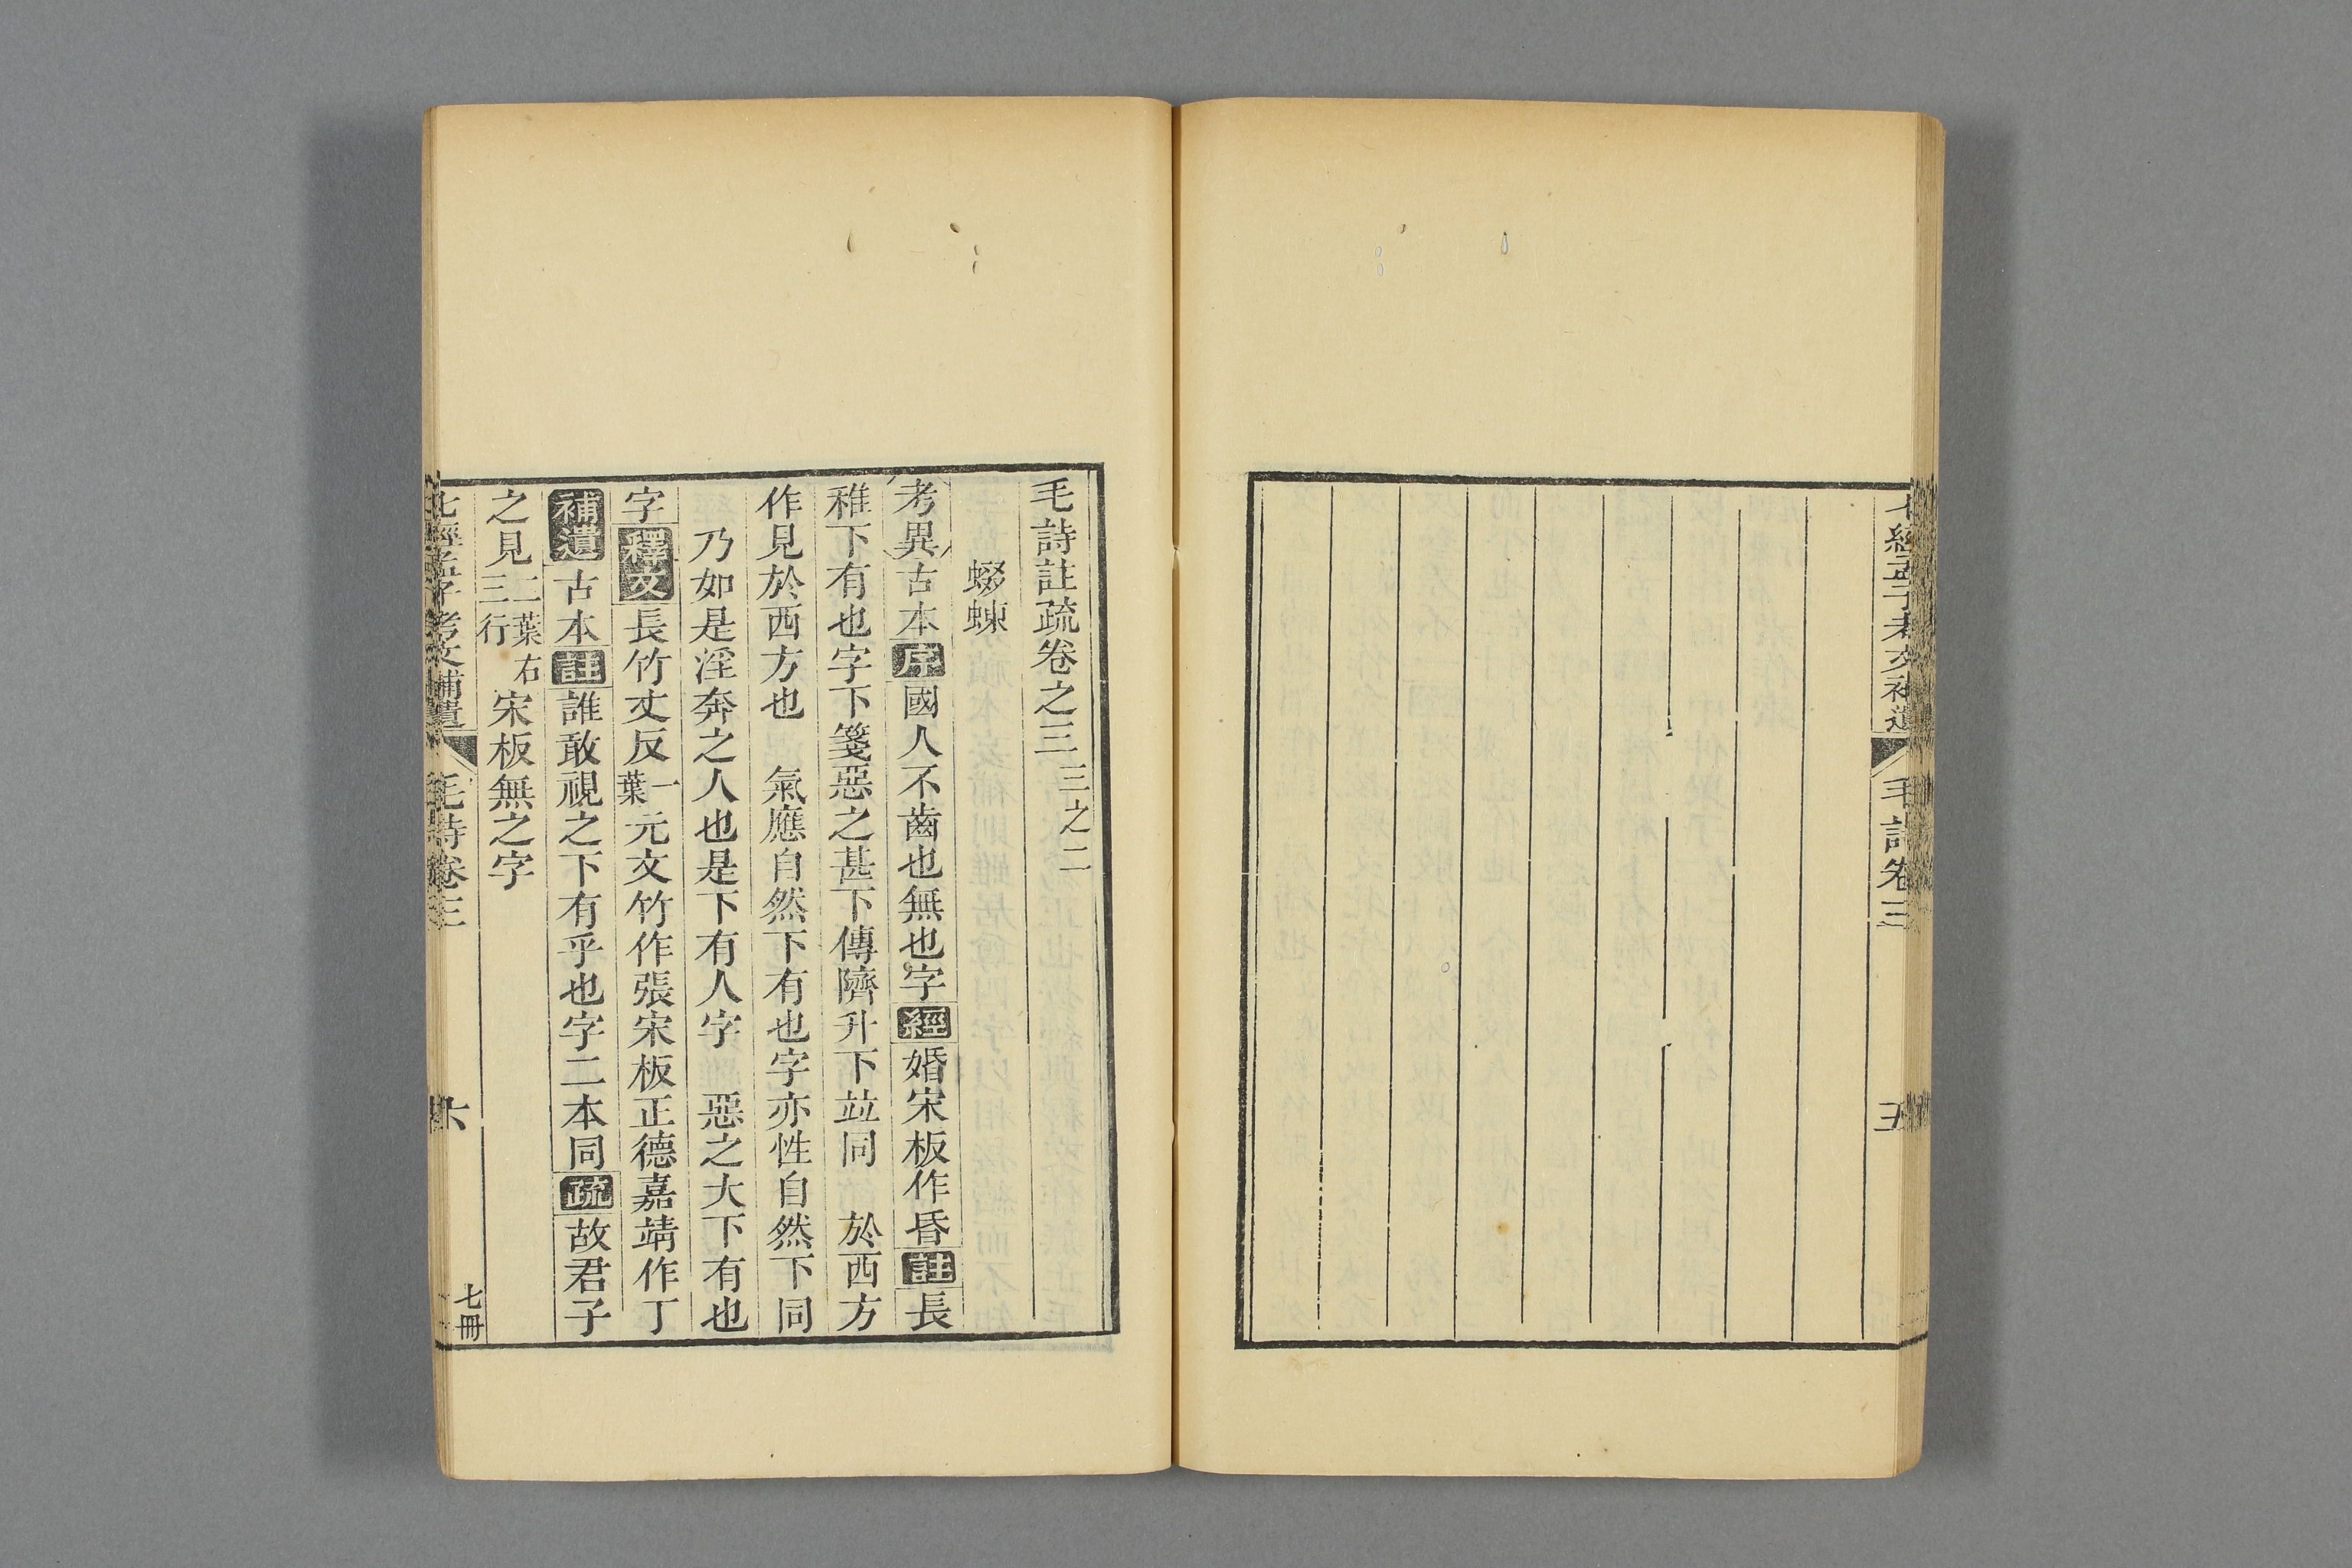 七經孟子考文補遺 毛詩卷三 五
毛詩註疏卷之三 三之二
蝃蝀
考異古本序國人不齒也無也字經婚宋板作昏註長
稚下有也字下箋惡之甚下傳隮升下竝同 於西方
作見於西方也 氣應自然下有也字亦性自然下同
乃如是淫奔之人也是下有人字 惡之大下有也
字釋文長竹丈反一葉元文竹作張宋板正德嘉靖作丁
補遺古本註誰敢視之下有乎也字二本同疏故君子
之見二葉右三行宋板無之字
七經孟子考文補遺 毛詩卷三 六 七冊